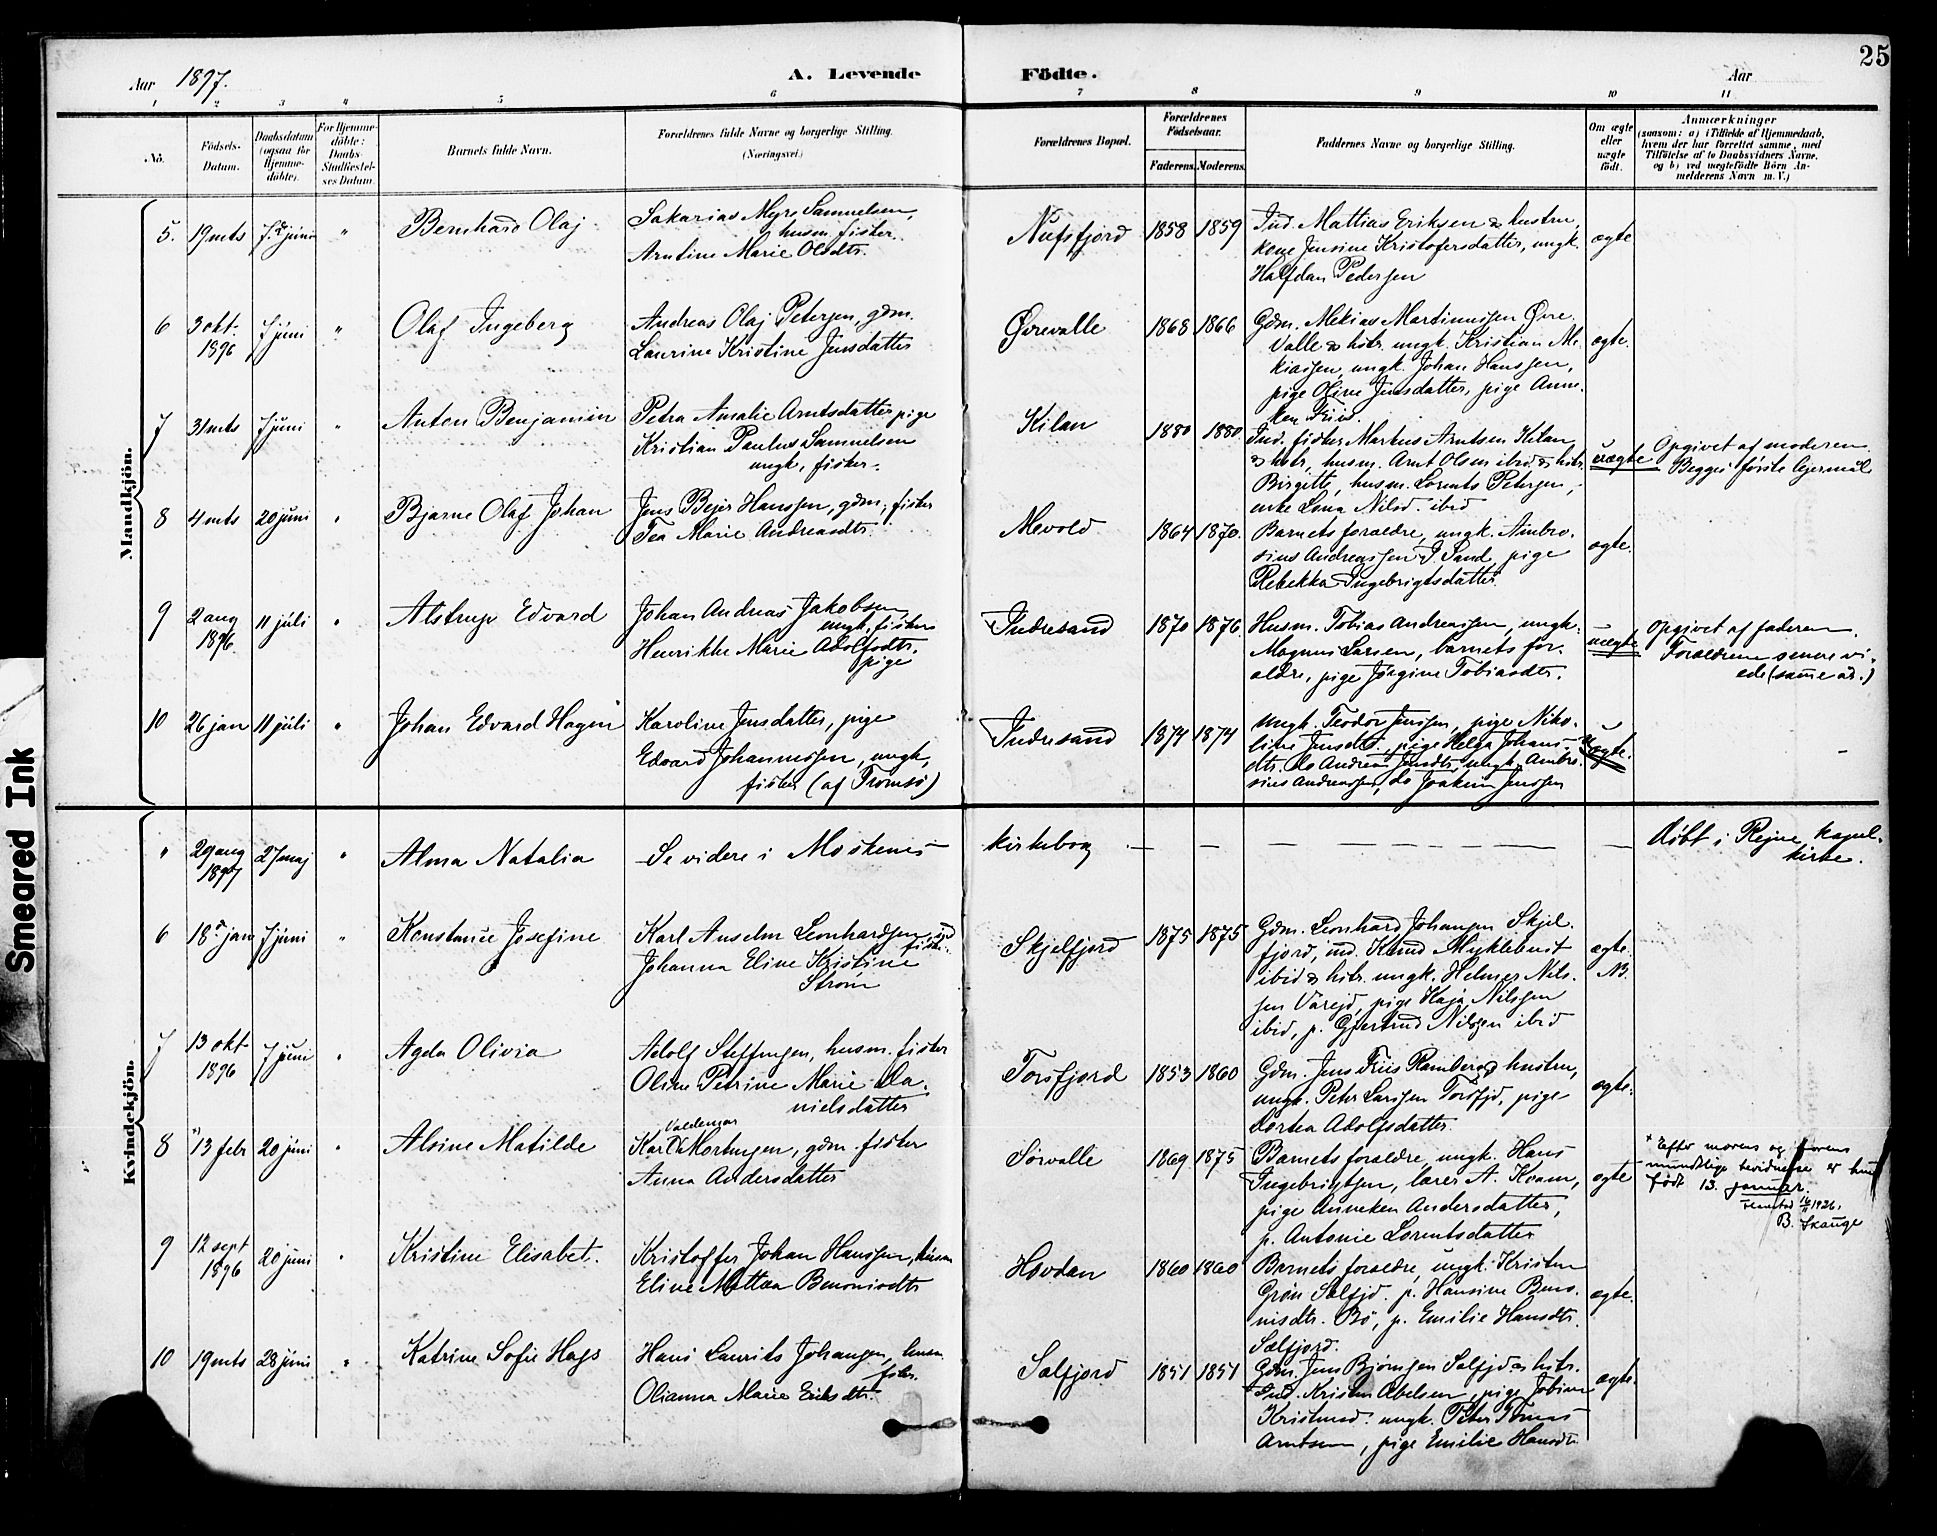 Smeared Ink
25
Aar 1897.
A. Levende Födte.
Aar
1 2 3 4 5 6 7 8 9 10 11
No.
Födsels-Datum.
Daabsdatum (ogsaa for Hjemme-döbte).
For Hjemme-döbte: Daabs-Stadfæstel-ses Datum.
Barnets fulde Navn.
Forældrenes fulde Navne og borgerlige Stilling.
(Næringsvei.)
Forældrenes Bopæl.
Forældrenes Födselsaar.
Faderens. Moderens.
Faddernes Navne og borgerlige Stilling.
Om ægte eller uægte födt.
Anmærkninger
(saasom: a) i Tilfælde af Hjemmedaab,
hvem der har forrettet samme, med
Tilföielse af to Daabsvidners Navne,
og b) ved uægtefödte Börn An-
melderens Navn m. V.)
Mandkjön.
5. 19 mts 7. juni " Bernhard Olaj
Sakarias Myre Samuelsen,
husm. fisker.
Arntine Marie Olsdtr.
Nufsfjord 1858 1859
Ind. Mattias Eriksen & hustru,
kone Jensine Kristofersdatter, ungk.
Halfdan Pedersen
ægte
6 3 okt. 1896 7 juni " Olaf Ingeberg
Andreas Olaj Petersen, gdm.
Laurine Kristine Jensdatter
Øvrevalle 1868 1866
Gdm. Mekias Martinussen Øvre-
valle & hstr. ungk. Kristian Me-
kiassen, ungk. Johan Hanssen,
pige Oline Jensdatter, pige Anne-
ken Friis
ægte.
7 31 mts 7 juni " Anton Benjamin
Petra Amalie Arntsdatter pige
Kristian Paulus Samuelsen
ungk, fisker.
Kilan 1880 1880
Ind. fisker Markus Arntsen Kilan
& hstr, husm. Arnt Olsen ibid & hstr.
Birgitte, husm. Lorents Petersen,
enke Lina Nilsd. ibid
uægte
Opgivet af moderen
Begges første lejermål
8 4 mts 20 juni " Bjarne Olaf Johan
Jens Bejer Hanssen, gdm, fisker
Tea Marie Andreasdtr.
Mevold 1864 1870.
Barnets forældre, ungk. Ambro-
sius Andreassen I. Sand, pige
Rebekka Ingebrigtsdatter.
ægte.
9 2 aug 1896. 11 júli " Alstrup Edvard
Johan Andreas Jakobsen
ungk, fisker
Henrikke Marie Adolfsdtr.
pige
Indresand 1870 1876
Husm. Tobias Andreassen, ungk.
Magnus Larsen, barnets for-
ældre, pige Jørgine Tobiasdtr.
uægte
Opgivet af faderen.
Forældrene senere vi-
ede (samme år.)
10 26 jan 11 júli " Johan Edvard Hagen
Karoline Jensdatter, pige
Edvard Johannessen, ungk,
fisker (af Tromsø)
Indresand 1874 1874
Ungk. Teodor Jenssen, pige Niko-
line Jensdtr., pige Helga Johans-
dtr. do Andrea Jensdtr, ungk. Ambro-
sius Andreassen, do Joakim Jenssen
uægte.
Kvindekjön.
" 29 aug 1897 27 maj " Alma Natalia
Se videre i Moskenes kirkebog
døbt i Rejne kapel-
kirke.
6 18 jan 7 juni " Konstanse Josefine
Karl Anselm Leonhardsen, ind
fisker.
Johanna Eline Kristine
Strøm
Skjelfjord 1875 1875
Gdm. Leonhard Johansen Skjel-
fjord, ind. Knud Myklebust
ibid & hstr. ungk. Helmer Nils-
sen Varejd, pige Kaja Nilssen
ibid, p. Gjertrud Nilssen ibid
ægte.
NB.
7 13 okt 1896 7 juni " Agda Olivia
Adolf Steffensen, husm. fisker
Oline Petrine Marie Da-
nielsdatter
Torsfjord 1853 1860
Gdm. Jens Friis Ramberg & hustru,
ungk. Peter Larssen Torsfjd, pige
Dortea Adolfsdatter.
ægte.
8 x) 13 febr 20 juni " Alvine Matilde
Valdemar
Karl Mortensen, gdm. fisker
Anna Andersdatter
Sørvalle 1869 1875
Barnets forældre, ungk. Hans
Ingebrigtsen, lærer A. Kvam,
pige Anneken Andersdatter,
p. Antonie Lorentsdatter
ægte
x Efter morens og farens
mundtlige bevidnelse er hun
født 13. januar.
B. Skauge
9 12 sept 1896 20 juni " Kristine Elisabet.
Kristoffer Johan Hanssen, husm
Eline Mattea Benonisdtr
Hovdan 1860 1860
Barnets forældre, ungk. Kristen
Grøn Selfjd. p. Hansine Beno-
nisdtr. Bø, p. Emilie Hansdtr.
Selfjord.
ægte.
10 19 mts 28 juni " Katrine Sofie Hags
Hans Laurits Johansen, husm.
fisker.
Olianna Marie Eriksdtr.
Selfjord 1851 1851
Gdm. Jens Bjørnsen Selfjd & hstr.
Ind. Kristen Abelsen, pige Jobine
Kristensd. ungk. Peter Tomas
Arntsen, pige Emilie Hansdtr.
ægte.